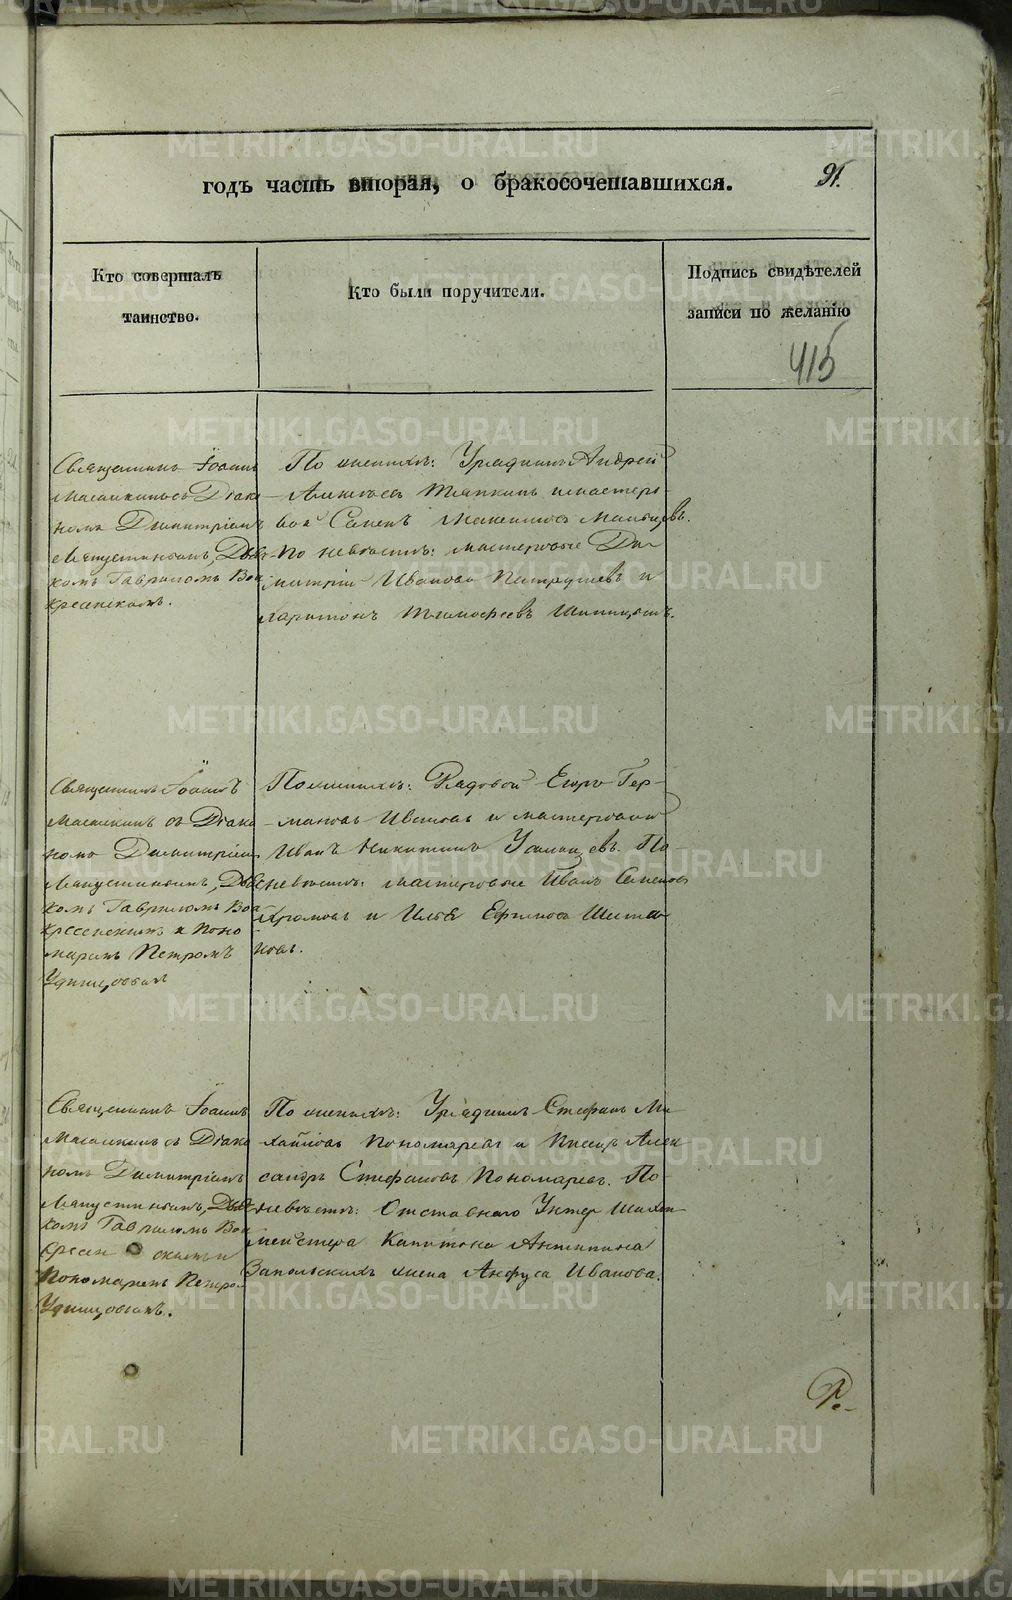 годъ часть вторая, о бракосочетавшихся.
91.
Кто совершалъ
таинство.
Кто были поручители.
Подпись свидѣтелей
записи по желанію
415
Священникъ Іоаннъ
съ Діако
номъ Димитріемъ
Ляпустинымъ, Дьяч
комъ Гавриломъ Вос
кресенскимъ.
По женихѣ: Урядникъ Андрей
Тяпкинъ и мастеро-
вой
По невѣстѣ: мастеровые Ди-
митрій Ивановъ Петрушевъ и
Харитонъ Тимофеевъ
Священникъ Іоаннъ
съ Діако
номъ Димитріемъ
Ляпустинымъ, Дьяч
комъ Гавриломъ Вос
кресенскимъ и Поно
маремъ Петромъ
Удинцовымъ
По женихѣ: Рядовой Егоръ Гер-
мановъ Ивановъ и мастеровой
Иванъ Никитинъ По
невѣстѣ: мастеровые Иванъ Семеновъ
и Илья Ефимовъ Шипи
новъ.
Священникъ Іоаннъ
съ Діако
номъ Димитріемъ
Ляпустинымъ, Дьяч
комъ Гавриломъ Вос
кресен скимъ и
Пономаремъ Петро
Удинцовымъ.
По женихѣ: Урядникъ Стефанъ Ми
хайловъ Пономаревъ и Писецъ Алек
сандръ Стефановъ Пономаревъ. По
невѣстѣ: Отставнаго Унтер Шахт
мейстера Капитона Антипина
Запольскихъ жена Анфуса Иванова.
METRIKI.GASO-URAL.RU